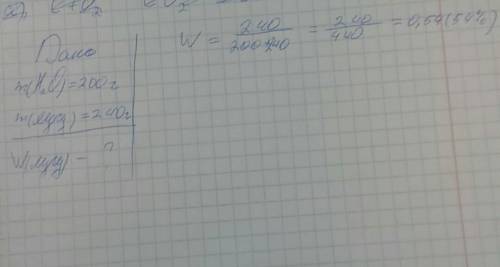 C + O₂ CO₂
Дано
m(H₂O)=200г
m(цук)=240г
W(цук) - ?
W = 240/200+240 = 240/440 = 0,54 (54%)